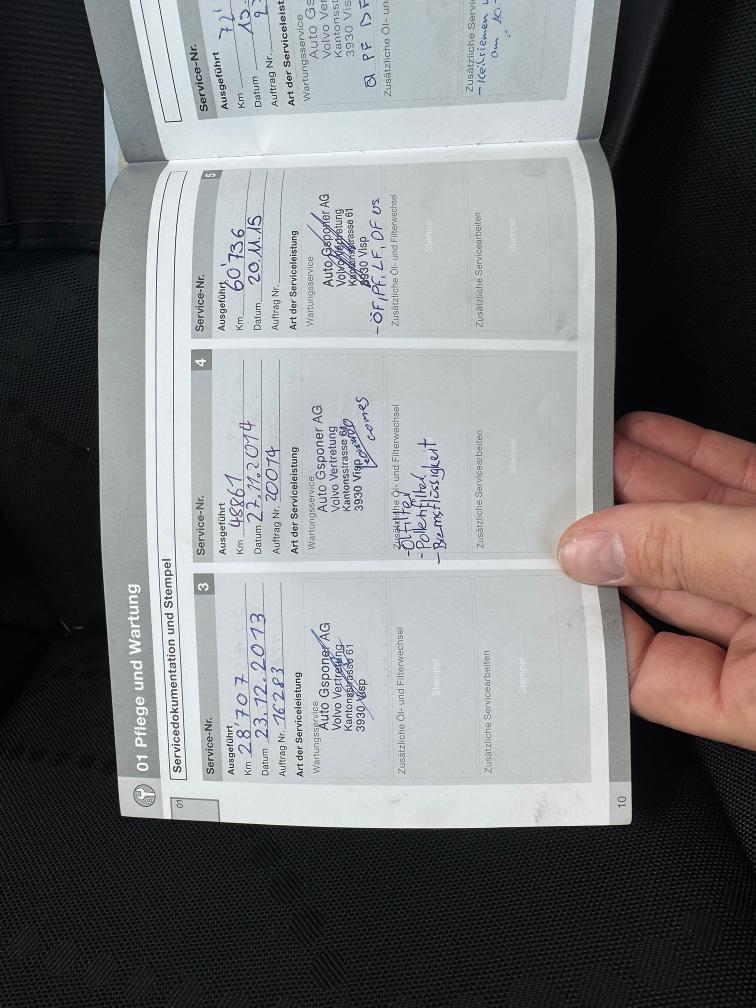 01 Pflege und Wartung
Servicedokumentation und Stempel
01
Service-Nr. 3
Ausgeführt
Km 28'707
Datum 23.12.2013
Auftrag Nr. 16283
Art der Serviceleistung
Wartungsservice
Auto Gsponer AG
Volvo Vertretung
Kantonsstrasse 61
3930 Visp
Zusätzliche Öl- und Filterwechsel
Stempel
Zusätzliche Servicearbeiten
Stempel
Service-Nr. 4
Ausgeführt
Km 48861
Datum 27.11.2014
Auftrag Nr. 20074
Art der Serviceleistung
Wartungsservice
Auto Gsponer AG
Volvo Vertretung
Kantonsstrasse 61
3930 Visp
Zusätzliche Öl- und Filterwechsel
-Ölfilter
-Pollenfilter
-Bremsflüssigkeit
Zusätzliche Servicearbeiten
Stempel
Service-Nr. 5
Ausgeführt
Km 60'736
Datum 20.11.15
Auftrag Nr.
Art der Serviceleistung
Wartungsservice
Auto Gsponer AG
Volvo Vertretung
Kantonsstrasse 61
3930 Visp
-ÖF, PF, LF, DF
Zusätzliche Öl- und Filterwechsel
Stempel
Zusätzliche Servicearbeiten
Stempel
10
Service-Nr.
Ausgeführt
Km 72'
Datum 13.
Auftrag Nr.
Art der Serviceleist
Wartungsservice
Auto Gs
Volvo Ver
Kantonsst
3930 Vis
PF DF
Zusätzliche Öl- un
Zusätzliche Service
-Keilriemen
am